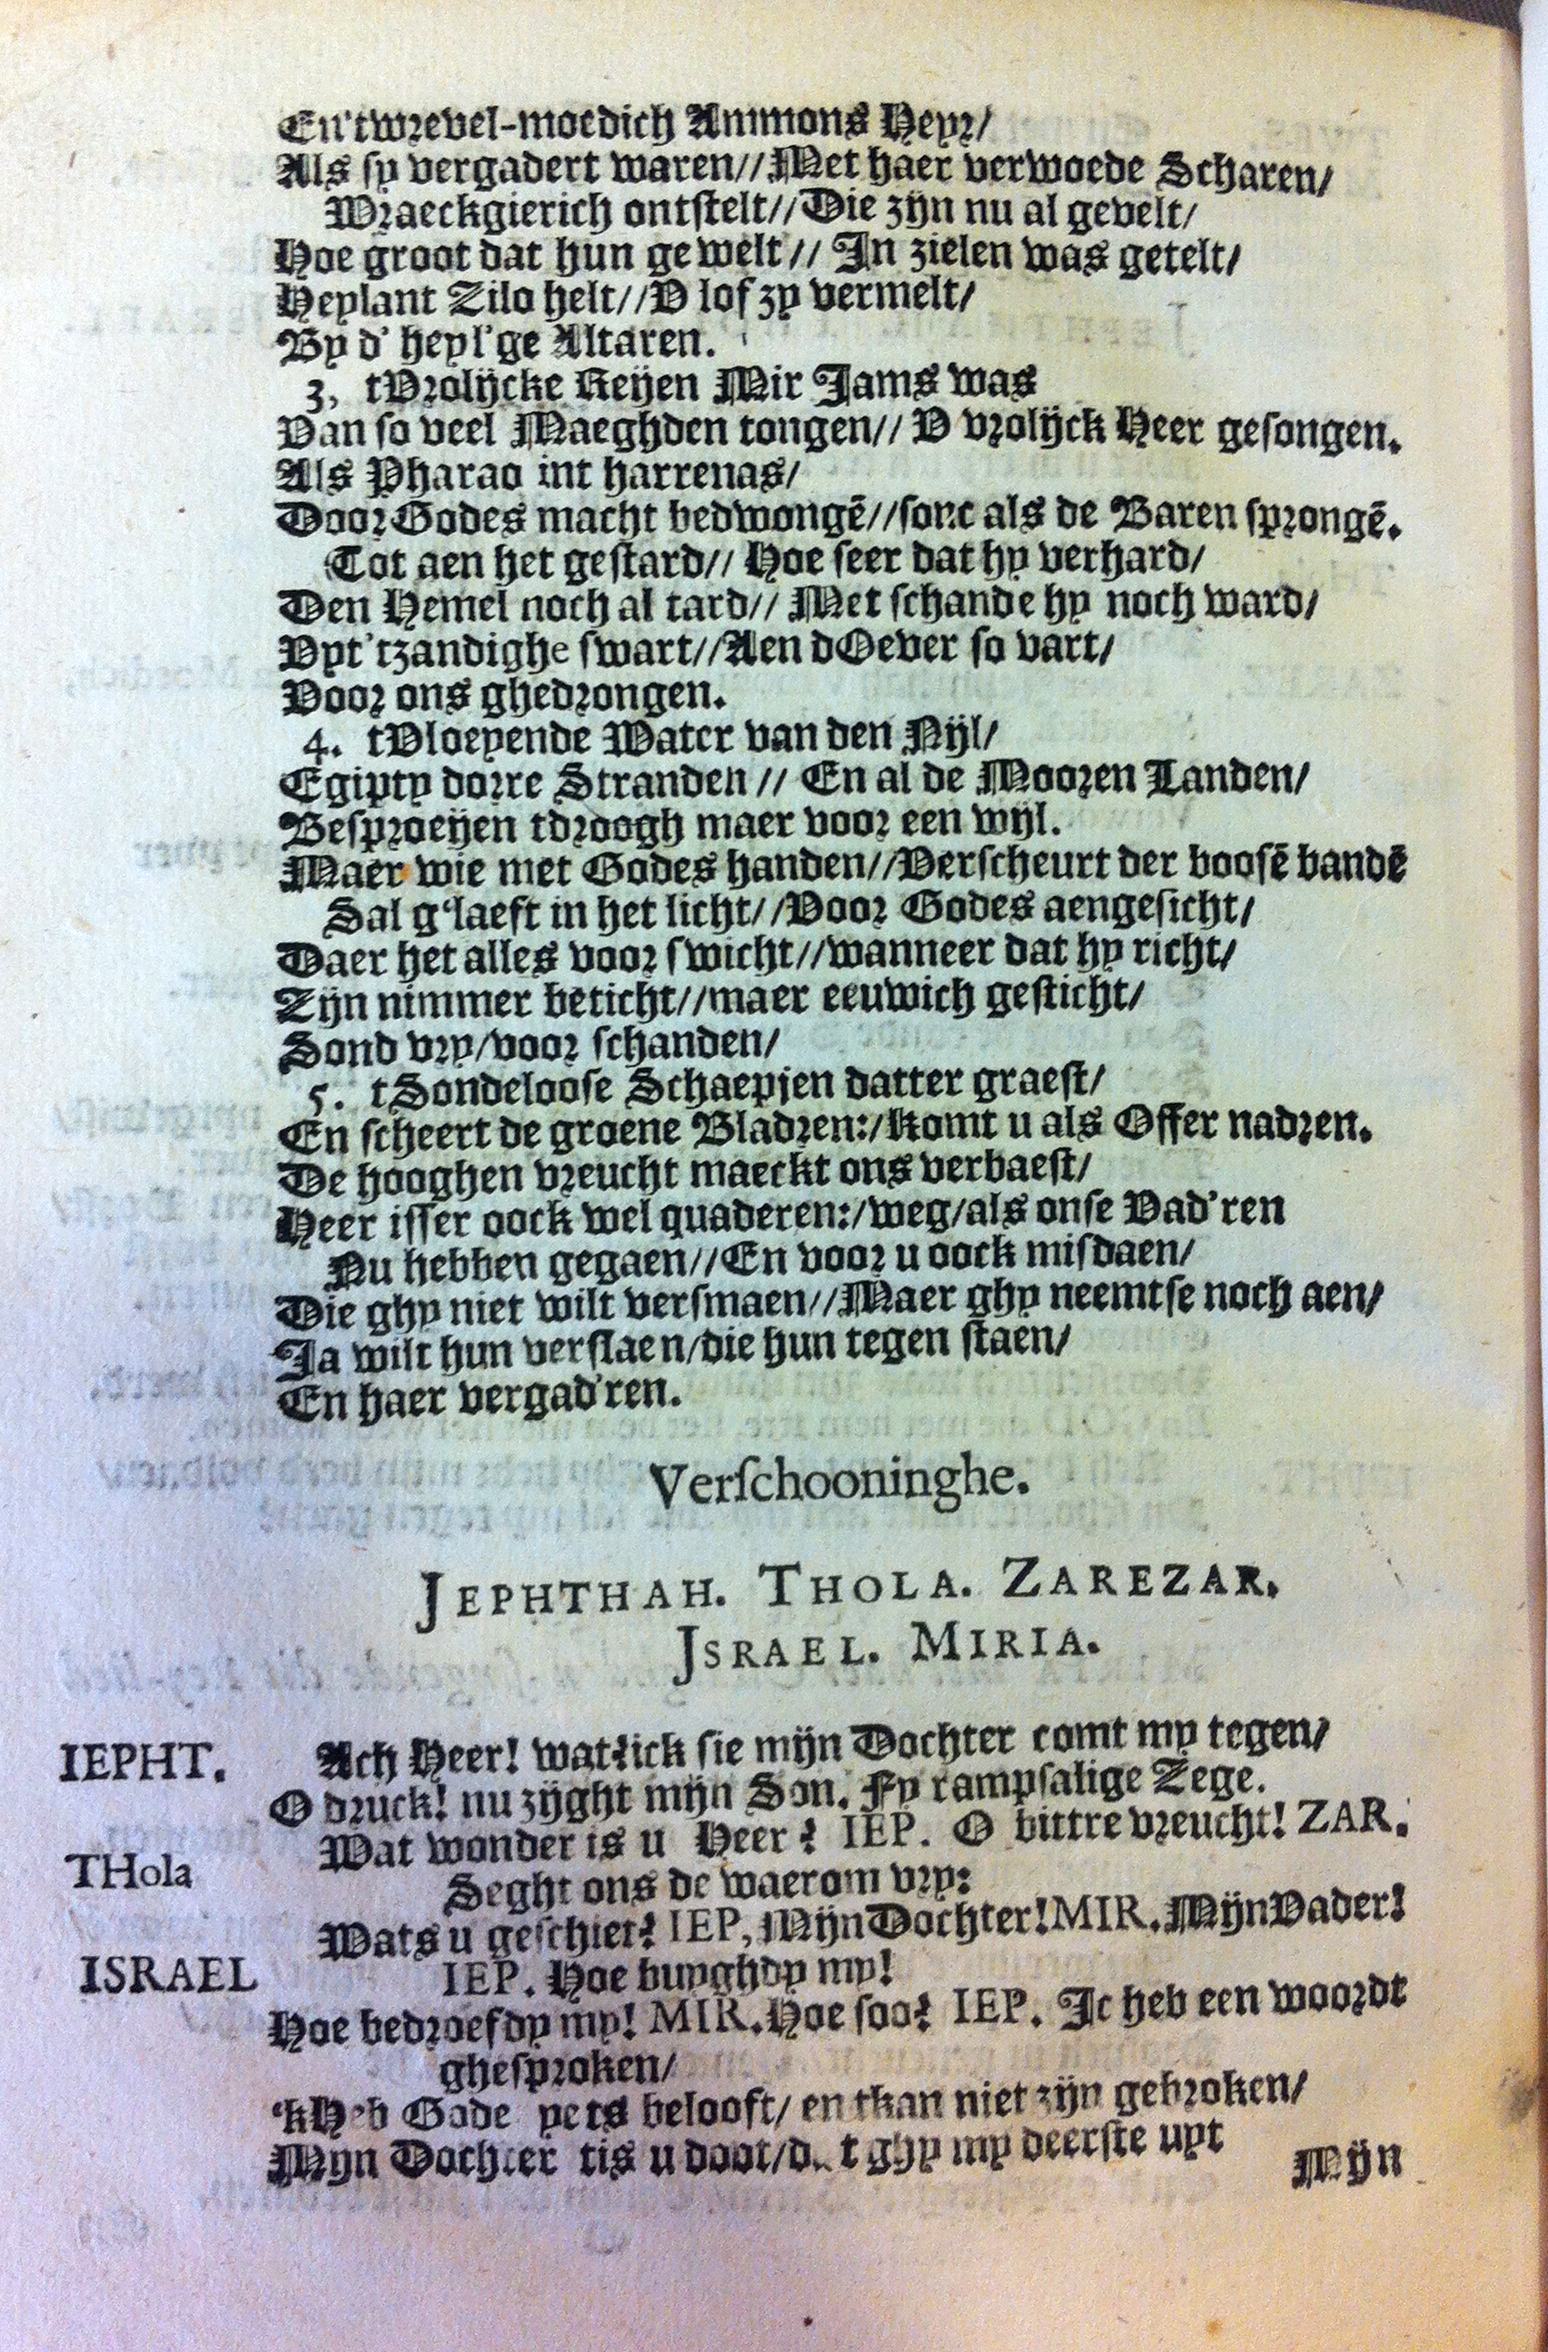 En'twrevel-moedich Ammons Heyr/
Als sy vergadert waren//Met haer verwoede Scharen/
Wraeckgierich ontstelt//Die zijn nu al gevelt/
Hoe groot dat hun gewelt// In zielen was getelt/
Heylant Zilo helt//V lof zy vermelt/
By d' heyl'ge Altaren.
3, tVrolijcke Reyen Mir Jams was
Van so veel Maeghden tongen// V vrolijck Heer gesongen.
Als Pharao int harrenas/
Door Godes macht bedwongē//sonc als de Baren sprongē.
Tot aen het gestard// Hoe seer dat hy verhard/
Den Hemel noch al tard// Met schande hy noch ward/
Vyt'tzandighe swart//Aen dOever so vart/
Voor ons ghedrongen.
4. tVloeyende Water van den Nijl/
Egipty dorre Stranden// En al de Mooren Landen/
Besproeyen tdroogh maer voor een wijl.
Maer wie met Godes handen//Verscheurt der boosē bandē
Sal g'laeft in het licht//Voor Godes aengesicht/
Daer het alles voor swicht//wanneer dat hy richt/
Zijn nimmer beticht//maer eeuwich gesticht/
Sond vry/voor schanden/
5. tSondeloose Schaepjen datter graest/
En scheert de groene Bladren:/komt u als Offer nadren.
De hooghen vreucht maeckt ons verbaest/
Heer isser oock wel quaderen:/weg/als onse Vad'ren
Nu hebben gegaen//En voor u oock misdaen/
Die ghy niet wilt versmaen//Maer ghy neemtse noch aen/
Ja wilt hun verslaen/die hun tegen staen/
En haer vergad'ren.
Verschooninghe.
JEPHTHAH. THOLA. ZAREZAR.
JSRAEL. MIRIA.
IEPHT. Ach Heer! wat? ick sie mijn Dochter comt my tegen/
O druck! nu zijght mijn Son. Fy rampsalige Zege.
THola Wat wonder is u Heer? IEP. O bittre vreucht! ZAR.
Seght ons de waerom vry:
ISRAEL Wats u geschiet? IEP, Mijn Dochter! MIR. Mijn Vader!
IEP. Hoe buyghdy my!
Hoe bedroefdy my! MIR. Hoe soo? IEP. Ic heb een woordt
ghesproken/
'kHeb Gode yets belooft/ en tkan niet zijn gebroken/
Mijn Dochter tis u doot/dat ghy my deerste uyt
Mijn